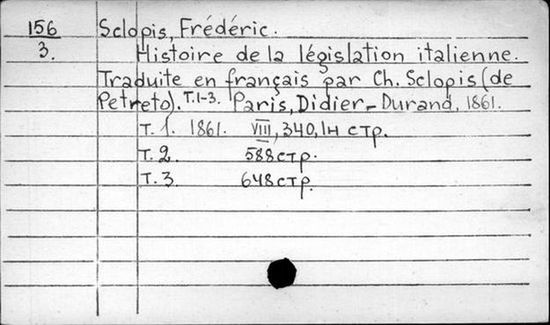 156 Sclopis, Frédéric.
3. Histoire de la législation italienne.
Traduite en français par Ch. Sclopis (de
Petreto). Т.1-3. Paris, Didier-Durand, 1861.
Т. 1. 1861. VIII, 340, 1н стр.
Т. 2. 588 стр.
Т. 3. 648 стр.